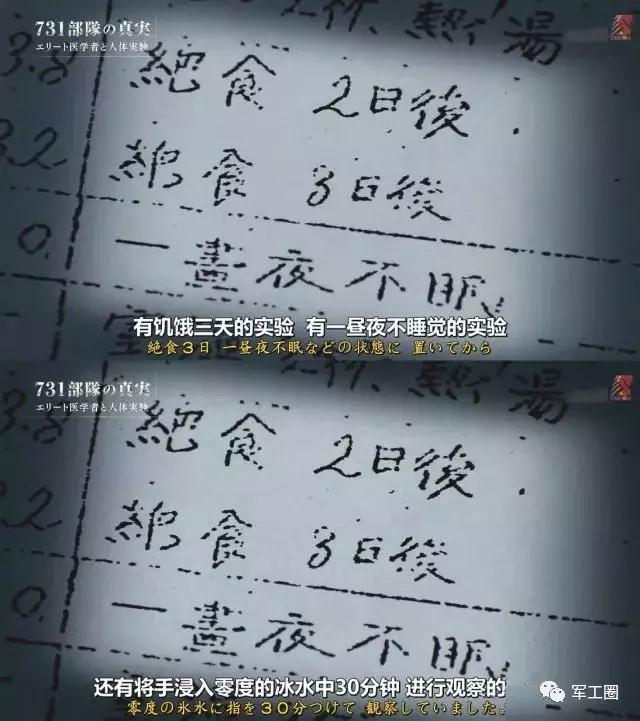 731部隊の真実
エリート医学者と人体実験
熱湯
3.8
絶食 2日後.
3.2
絶食 3日後
0.
一晝夜不眠
有饥饿三天的实验 有一昼夜不睡觉的实验
絶食3日 一昼夜不眠などの状態に 置いてから
731部隊の真実
エリート医学者と人体実験
熱湯
3.8
絶食 2日後.
3.2
絶食 3日後
0.
一晝夜不眠
还有将手浸入零度的冰水中30分钟 进行观察的
零度の氷水に指を30分つけて 観察していました。
军工圈